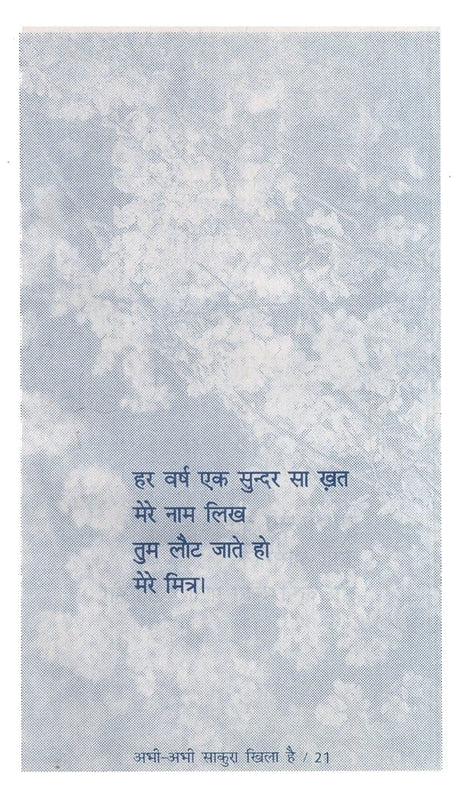 हर वर्ष एक सुन्दर सा ख़त
मेरे नाम लिख
तुम लौट जाते हो
मेरे मित्र।
अभी-अभी साकुरा खिला है / 21